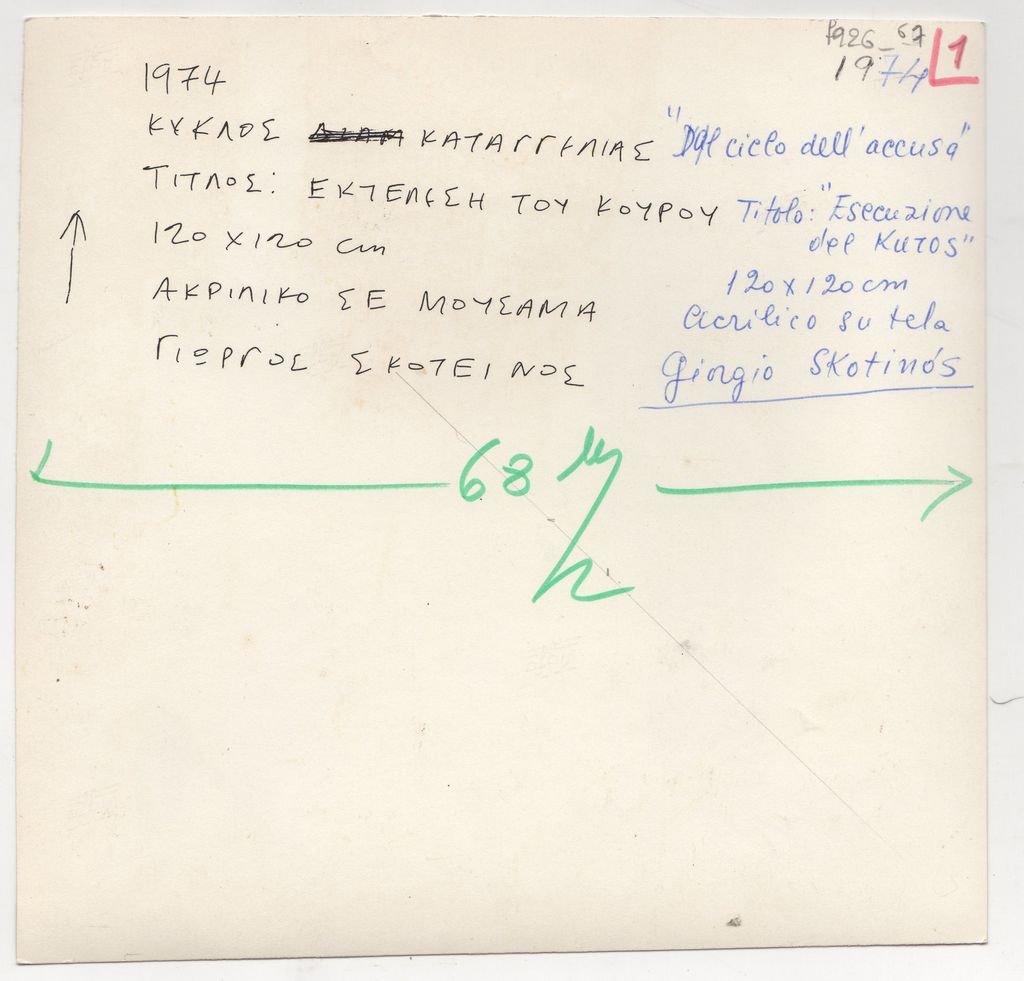 P926_67
1974
1
1974
ΚΥΚΛΟΣ ΚΑΤΑΓΓΕΛΙΑΣ
"Dal ciclo dell'accusa"
ΤΙΤΛΟΣ: ΕΚΤΕΛΕΣΗ ΤΟΥ ΚΟΥΡΟΥ
Titolo: "Esecuzione
del Kuros"
120 x 120 cm
120 x 120 cm
ΑΚΡΙΛΙΚΟ ΣΕ ΜΟΥΣΑΜΑ
acrilico su tela
ΓΙΩΡΓΟΣ ΣΚΟΤΕΙΝΟΣ
Giorgio Skotinós
68